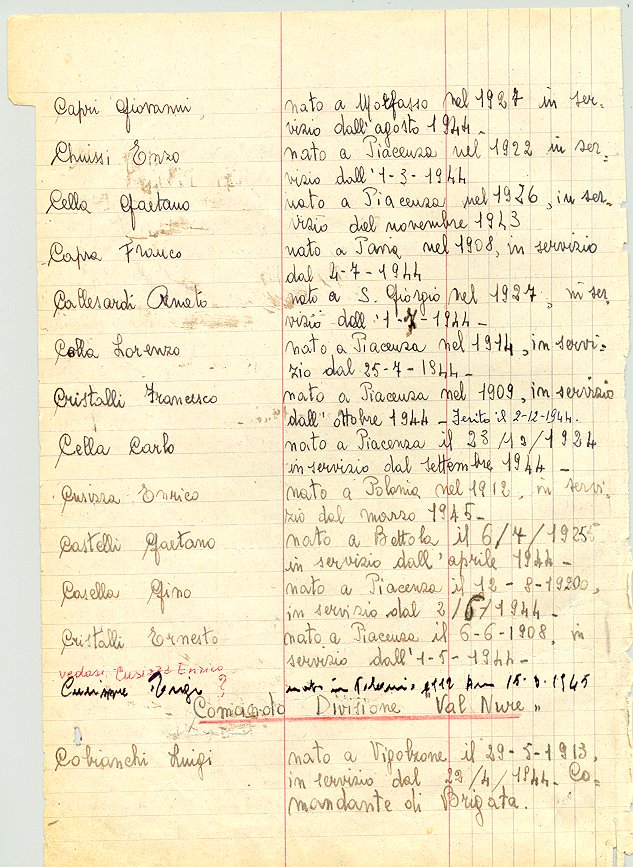 Capri Giovanni nato a Morfasso nel 1927 in ser-
vizio dall'agosto 1944 -
Chiussi Enzo nato a Piacenza nel 1922 in ser-
vizio dall'1-3-1944
Cella Gaetano nato a Piacenza nel 1926, in ser-
vizio dal novembre 1943
Capra Franco nato a nel 1908, in servizio
dal 4-7-1944
Callesardi Renato nato a S. Giorgio nel 1927, in ser-
vizio dall'1-7-1944 -
Colla Lorenzo nato a Piacenza nel 1914, in servi-
zio dal 25-7-1844 -
Cristalli Francesco nato a Piacenza nel 1909, in servizio
dall'ottobre 1944 - Ferito il 2-12-1944.
Cella Carlo nato a Piacenza il 1924
in servizio dal settembre 1944 -
Cusizza Enrico nato a Polonia nel 1912, in servi-
zio dal marzo 1945 -
Castelli Gaetano nato a Bettola il 6/7/1925
in servizio dall'aprile 1944 -
Casella Gino nato a Piacenza il 12-8-1920,
in servizio dal 2/6/1944 -
Cristalli Ernesto nato a Piacenza il 6-6-1908, in
servizio dall'1-5-1944 -
vedasi Cusizza Enrico
? 15-3-1945
Comando Divisione "Val Nure"
Cobianchi Luigi nato a Vigolzone il 29-5-1913,
in servizio dal 22/4/1944. Co-
mandante di Brigata.